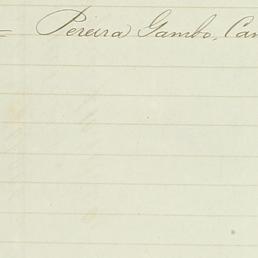 = Pereira Gambo, Cam